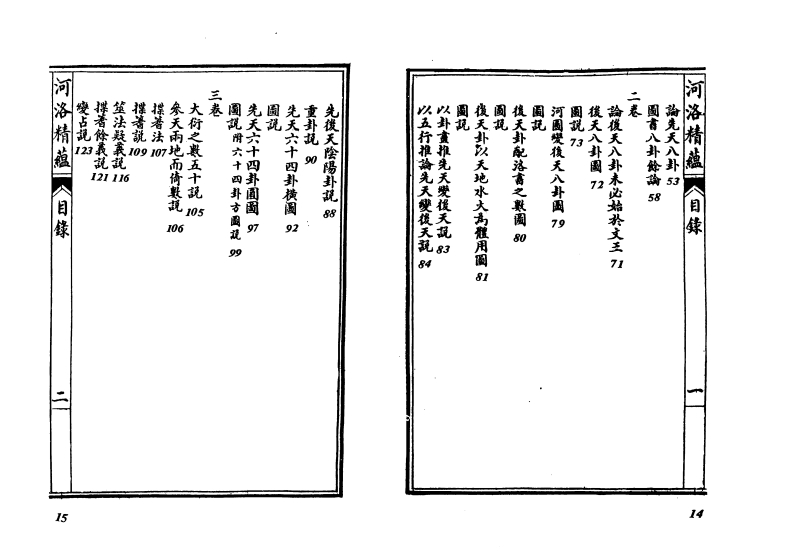 河洛精蘊
目錄
一
論先天八卦 53
圖書八卦餘論 58
二卷
論後天八卦未必始於文王 71
後天八卦圖 72
圖説 73
河圖變後天八卦圖 79
圖説
後天卦配洛書之數圖 80
圖説
後天卦以天地水火為體用圖 81
圖説
以卦畫推先天變後天説 83
以五行推論先天變後天説 84
14
先後天陰陽卦説 88
重卦説 90
先天六十四卦橫圖 92
圖説
先天六十四卦圓圖 97
圖説附六十四卦方圖説 99
三卷
大衍之數五十説 105
參天兩地而倚數説 106
揲蓍法 107
揲蓍説 109
筮法疑義説 116
揲蓍餘義説 121
變占説 123
河洛精蘊
目錄
二
15